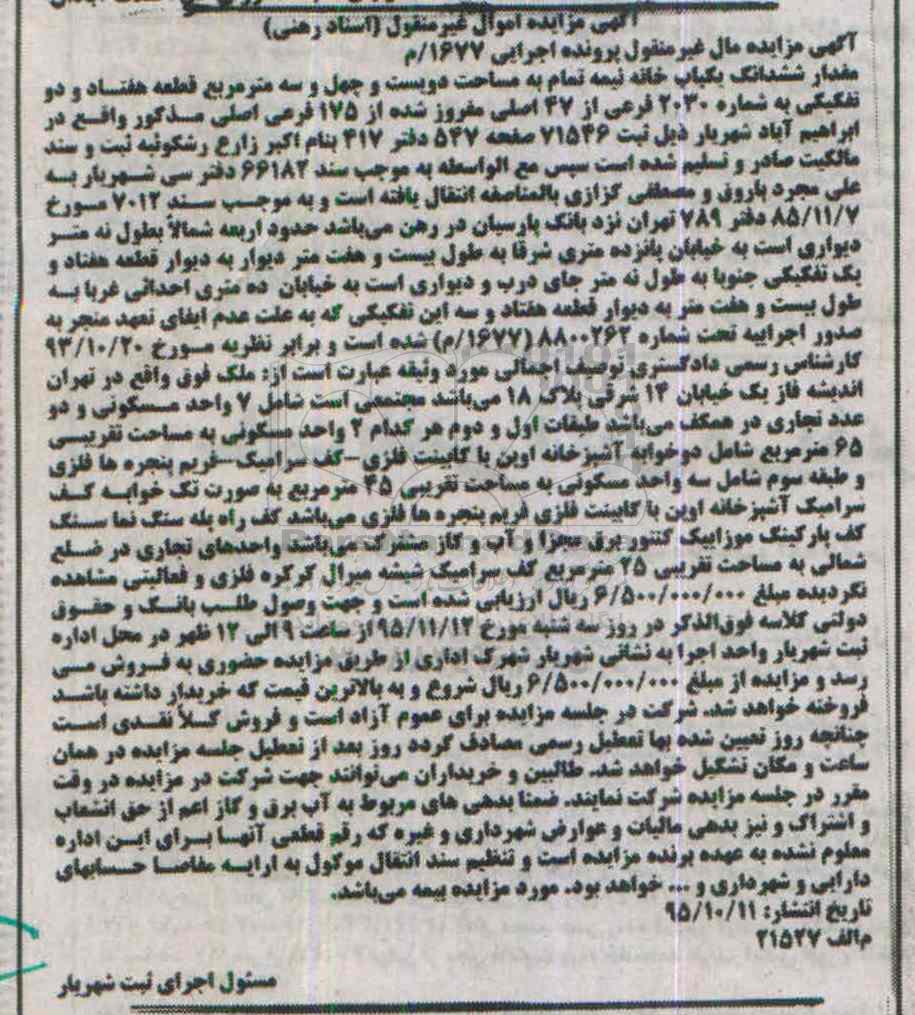 آگهی مزایده اموال غیرمنقول (اسناد رهنی)
آگهی مزایده مال غیرمنقول پرونده اجرایی ۱۶۷۷/م
مقدار ششدانگ یکباب خانه نیمه تمام به مساحت دویست و چهل و سه مترمربع قطعه هفتاد و دو
تفکیکی به شماره ۲۰۳۰ فرعی از ۴۷ اصلی مفروز شده از ۱۷۵ فرعی اصلی مذکور واقع در
ابراهیم آباد شهریار ذیل ثبت ۷۱۵۴۶ صفحه ۵۴۷ دفتر ۴۱۷ بنام اکبر زارع رشکوئیه ثبت و سند
مالکیت صادر و تسلیم شده است سپس مع الواسطه به موجب سند ۶۶۱۸۲ دفتر سی شهریار به
علی مجرد پاروق و مصطفی گزازی بالمناصفه انتقال یافته است و به موجب سند ۷۰۱۲ مورخ
۸۵/۱۱/۷ دفتر ۷۸۹ تهران نزد بانک پارسیان در رهن می‌باشد حدود اربعه شمالاً بطول نه متر
دیواری است به خیابان پانزده متری شرقا به طول بیست و هفت متر دیوار به دیوار قطعه هفتاد و
یک تفکیکی جنوبا به طول نه متر جای درب و دیواری است به خیابان ده متری احداثی غربا به
طول بیست و هفت متر به دیوار قطعه هفتاد و سه این تفکیکی که به علت عدم ایفای تعهد منجر به
صدور اجراییه تحت شماره ۸۸۰۰۲۶۲ (۱۶۷۷/م) شده است و برابر نظریه مورخ ۹۳/۱۰/۲۰
کارشناس رسمی دادگستری توصیف اجمالی مورد وثیقه عبارت است از: ملک فوق واقع در تهران
اندیشه فاز یک خیابان ۱۴ شرقی پلاک ۱۸ می‌باشد مجتمعی است شامل ۷ واحد مسکونی و دو
عدد تجاری در همکف می‌باشد طبقات اول و دوم هر کدام ۲ واحد مسکونی به مساحت تقریبی
۶۵ مترمربع شامل دوخوابه آشپزخانه اوپن با کابینت فلزی -کف سرامیک-فریم پنجره ها فلزی
و طبقه سوم شامل سه واحد مسکونی به مساحت تقریبی ۴۵ مترمربع به صورت تک خوابه کف
سرامیک آشپزخانه اوپن با کابینت فلزی فریم پنجره ها فلزی می‌باشد کف راه پله سنگ نما سنگ
کف پارکینگ موزاییک کنتور برق مجزا و آب و گاز مشترک می‌باشد واحدهای تجاری در ضلع
شمالی به مساحت تقریبی ۲۵ مترمربع کف سرامیک شیشه میرال کرکره فلزی و فعالیتی مشاهده
نگردیده مبلغ ۶/۵۰۰/۰۰۰/۰۰۰ ریال ارزیابی شده است و جهت وصول طلب بانک و حقوق
دولتی کلاسه فوق‌الذکر در روز سه شنبه مورخ ۹۵/۱۱/۱۲ از ساعت ۹ الی ۱۲ ظهر در محل اداره
ثبت شهریار واحد اجرا به نشانی شهریار شهرک اداری از طریق مزایده حضوری به فروش می
رسد و مزایده از مبلغ ۶/۵۰۰/۰۰۰/۰۰۰ ریال شروع و به بالاترین قیمت که خریدار داشته باشد
فروخته خواهد شد. شرکت در جلسه مزایده برای عموم آزاد است و فروش کلاً نقدی است
چنانچه روز تعیین شده بها تعطیل رسمی مصادف گردد روز بعد از تعطیل جلسه مزایده در همان
ساعت و مکان تشکیل خواهد شد. طالبین و خریداران می‌توانند جهت شرکت در مزایده در وقت
مقرر در جلسه مزایده شرکت نمایند. ضمنا بدهی های مربوط به آب برق و گاز اعم از حق انشعاب
و اشتراک و نیز بدهی مالیات و عوارض شهرداری و غیره که رقم قطعی آنها برای این اداره
معلوم نشده به عهده برنده مزایده است و تنظیم سند انتقال موکول به ارایه مفاصا حسابهای
دارایی و شهرداری و ... خواهد بود. مورد مزایده بیمه می‌باشد.
تاریخ انتشار: ۹۵/۱۰/۱۱
م‌الف ۲۱۵۲۷
مسئول اجرای ثبت شهریار